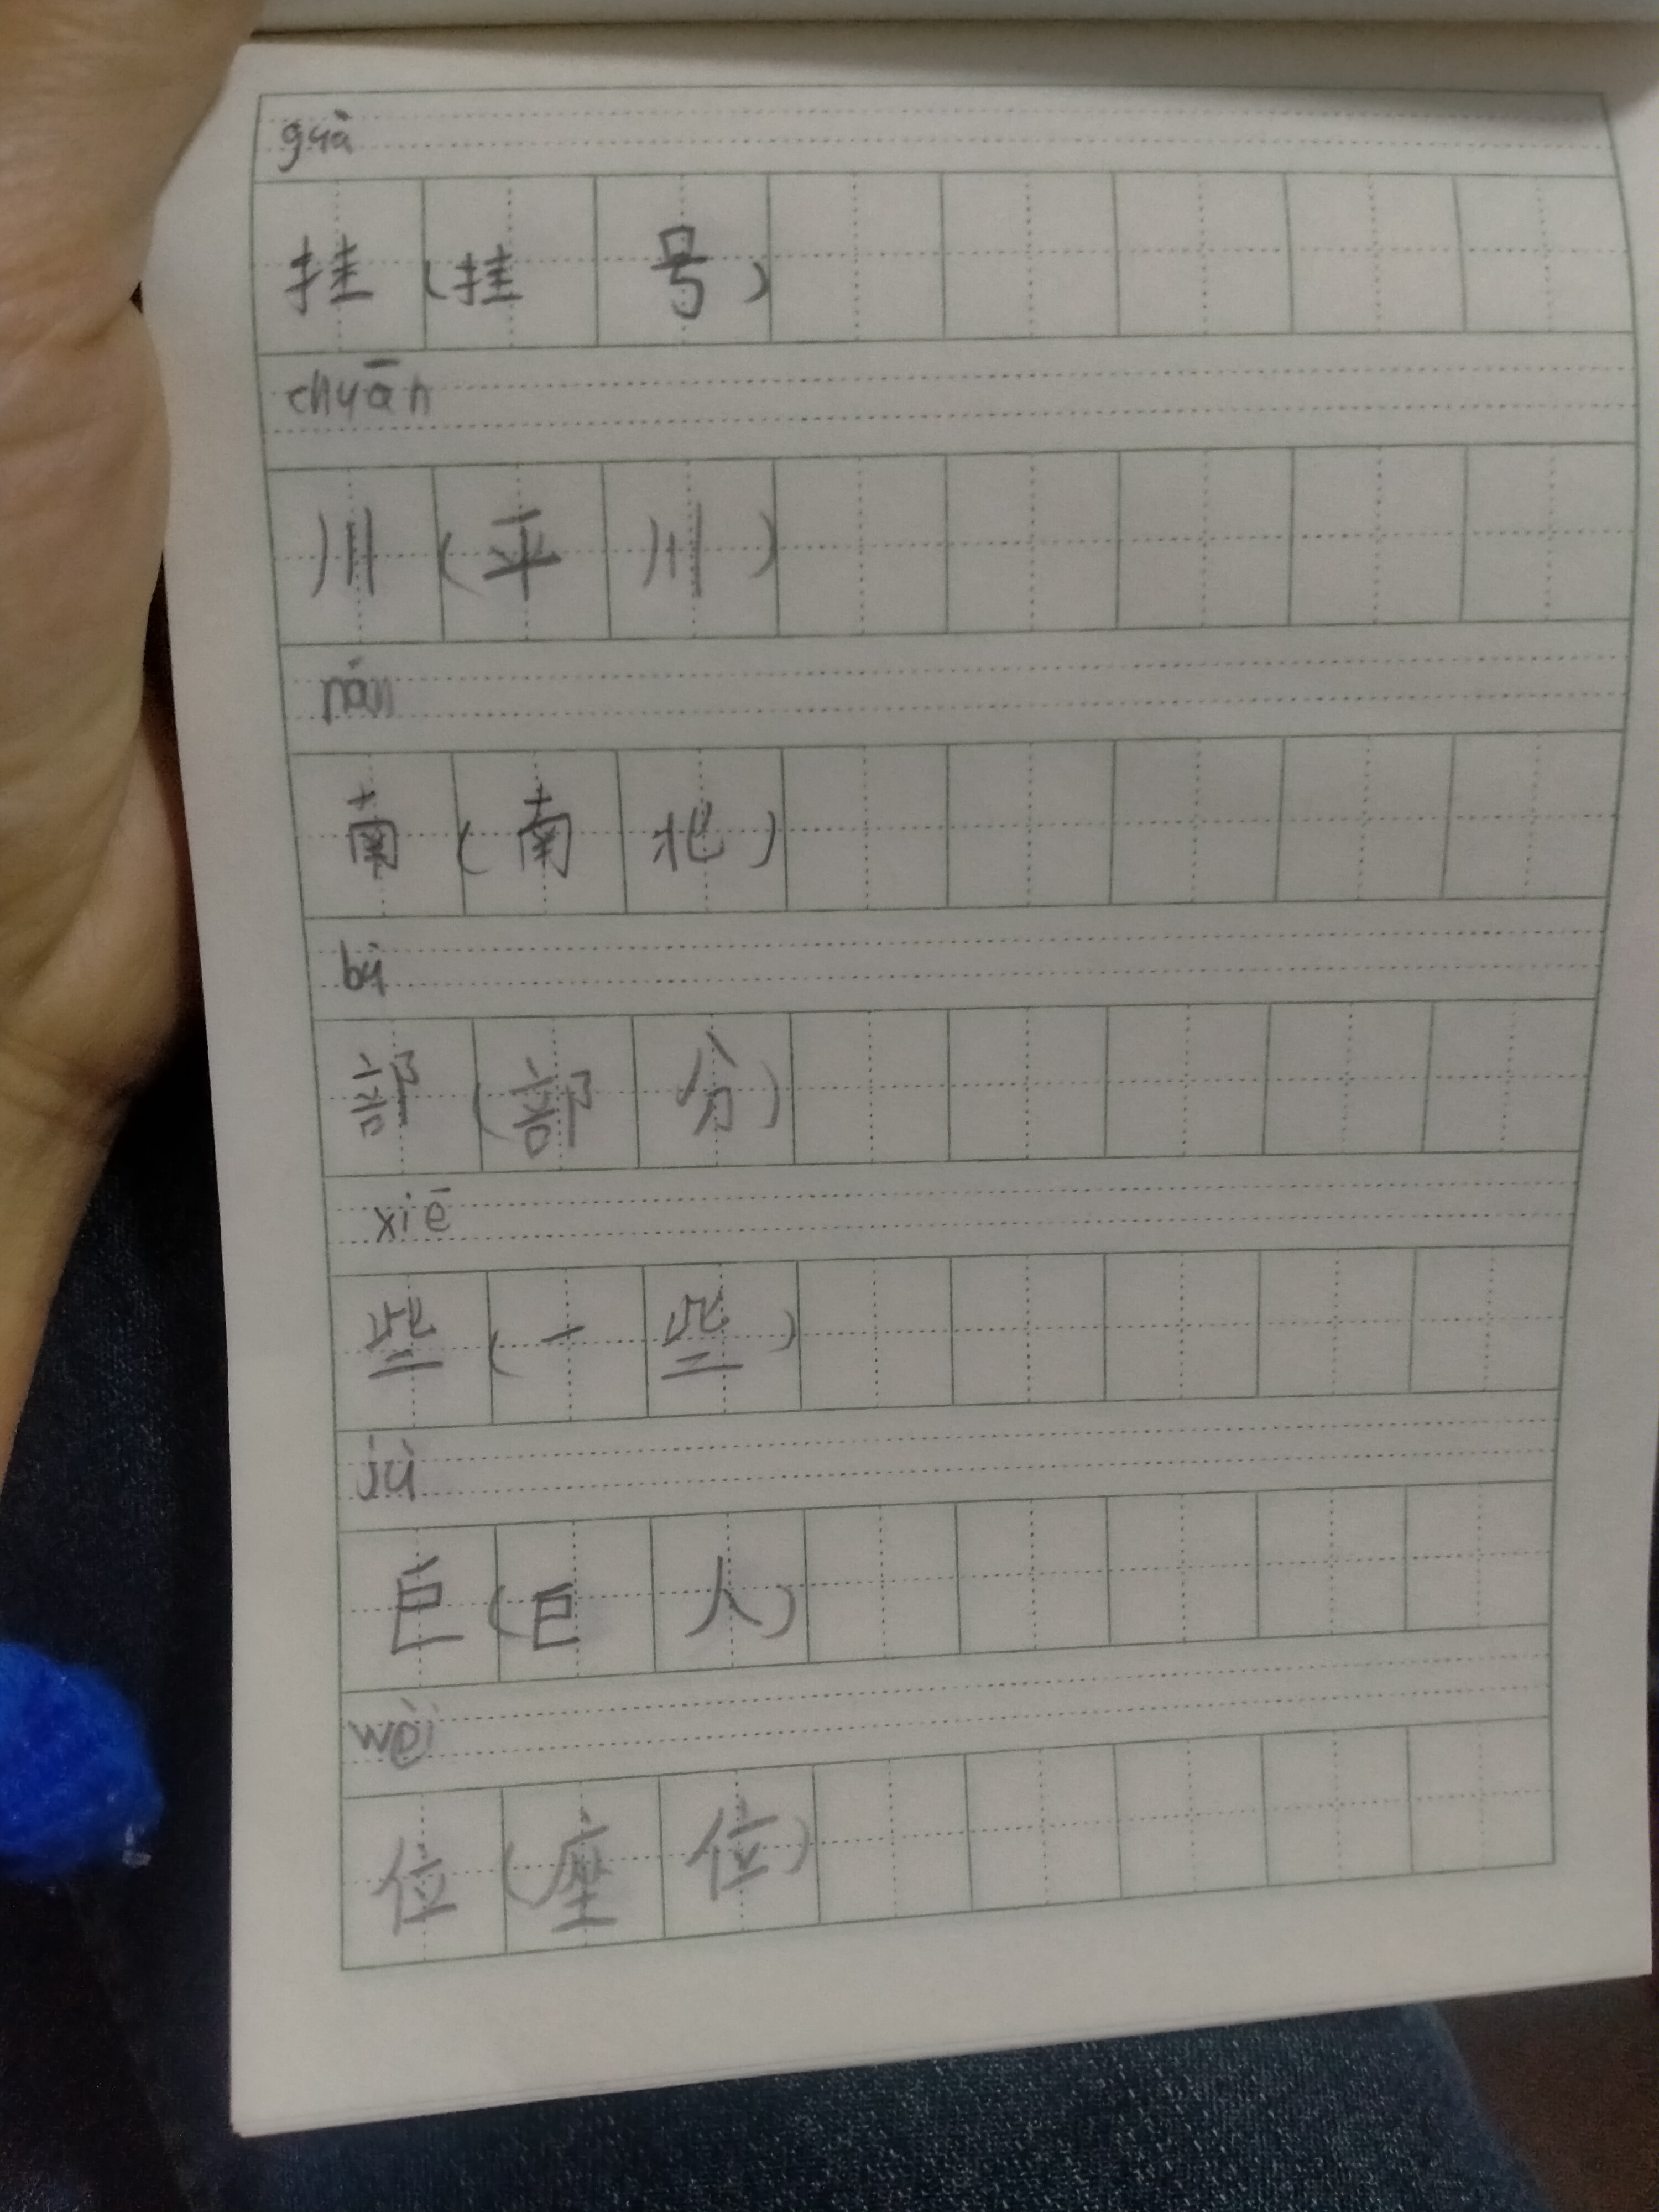 guà
挂(挂号)
chuān
川(平川)
nán
南(南北)
bù
部(部分)
xiē
些(一些)
jù
巨(巨人)
wèi
位(座位)